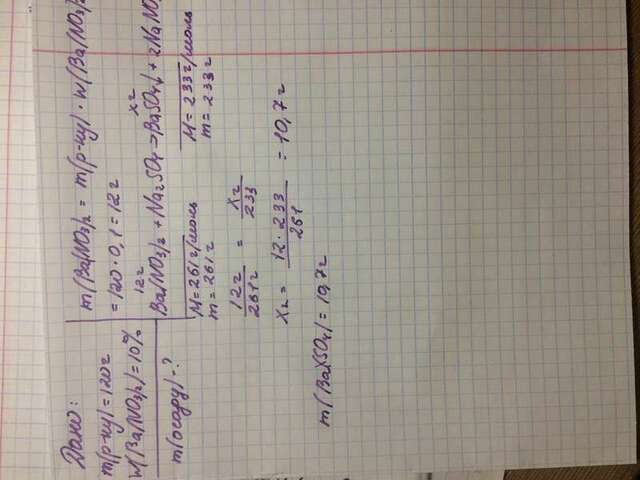 Дано:
m(р-ну)=120г
w(Ba(NO3)2)=10%
m(осаду)-?
m(Ba(NO3)2 = m(р-ну) · w(Ba(NO3)2
= 120·0,1=12г
12г xг
Ba(NO3)2 + Na2SO4 → BaSO4↓ + 2NaNO
M=261г/моль M=233г/моль
m=261г m=233г
12г/261г = xг/233
Xг = 12·233/261 = 10,7г
m(Ba(SO4)=10,7г